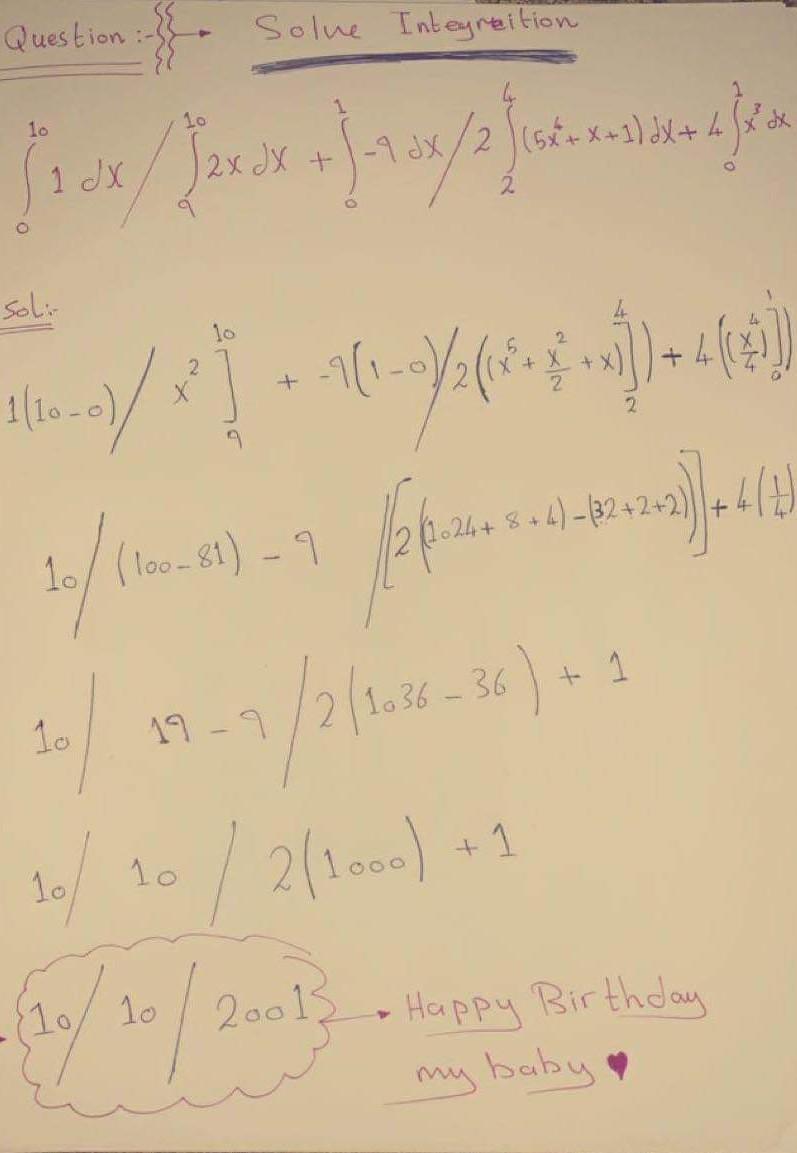 Question :- → Solve Integreition
∫₀¹⁰ 1 dx / ∫₉¹⁰ 2x dx + ∫₀¹ -9 dx / 2 ∫₂⁴ (5x⁴ + x + 1) dx + 4 ∫₀¹ x³ dx
Sol:-
1(10-0) / x² ]₉¹⁰ + -9(1-0) / 2((x⁵ + x²/2 + x)]₂⁴) + 4((x⁴/4)]₀¹)
10 / (100-81) - 9 / [2(1024 + 8 + 4) - (32+2+2))] + 4(1/4)
10 / 19 - 9 / 2(1036 - 36) + 1
10 / 10 / 2(1000) + 1
10 / 10 / 2001 → Happy Birthday
my baby ♥